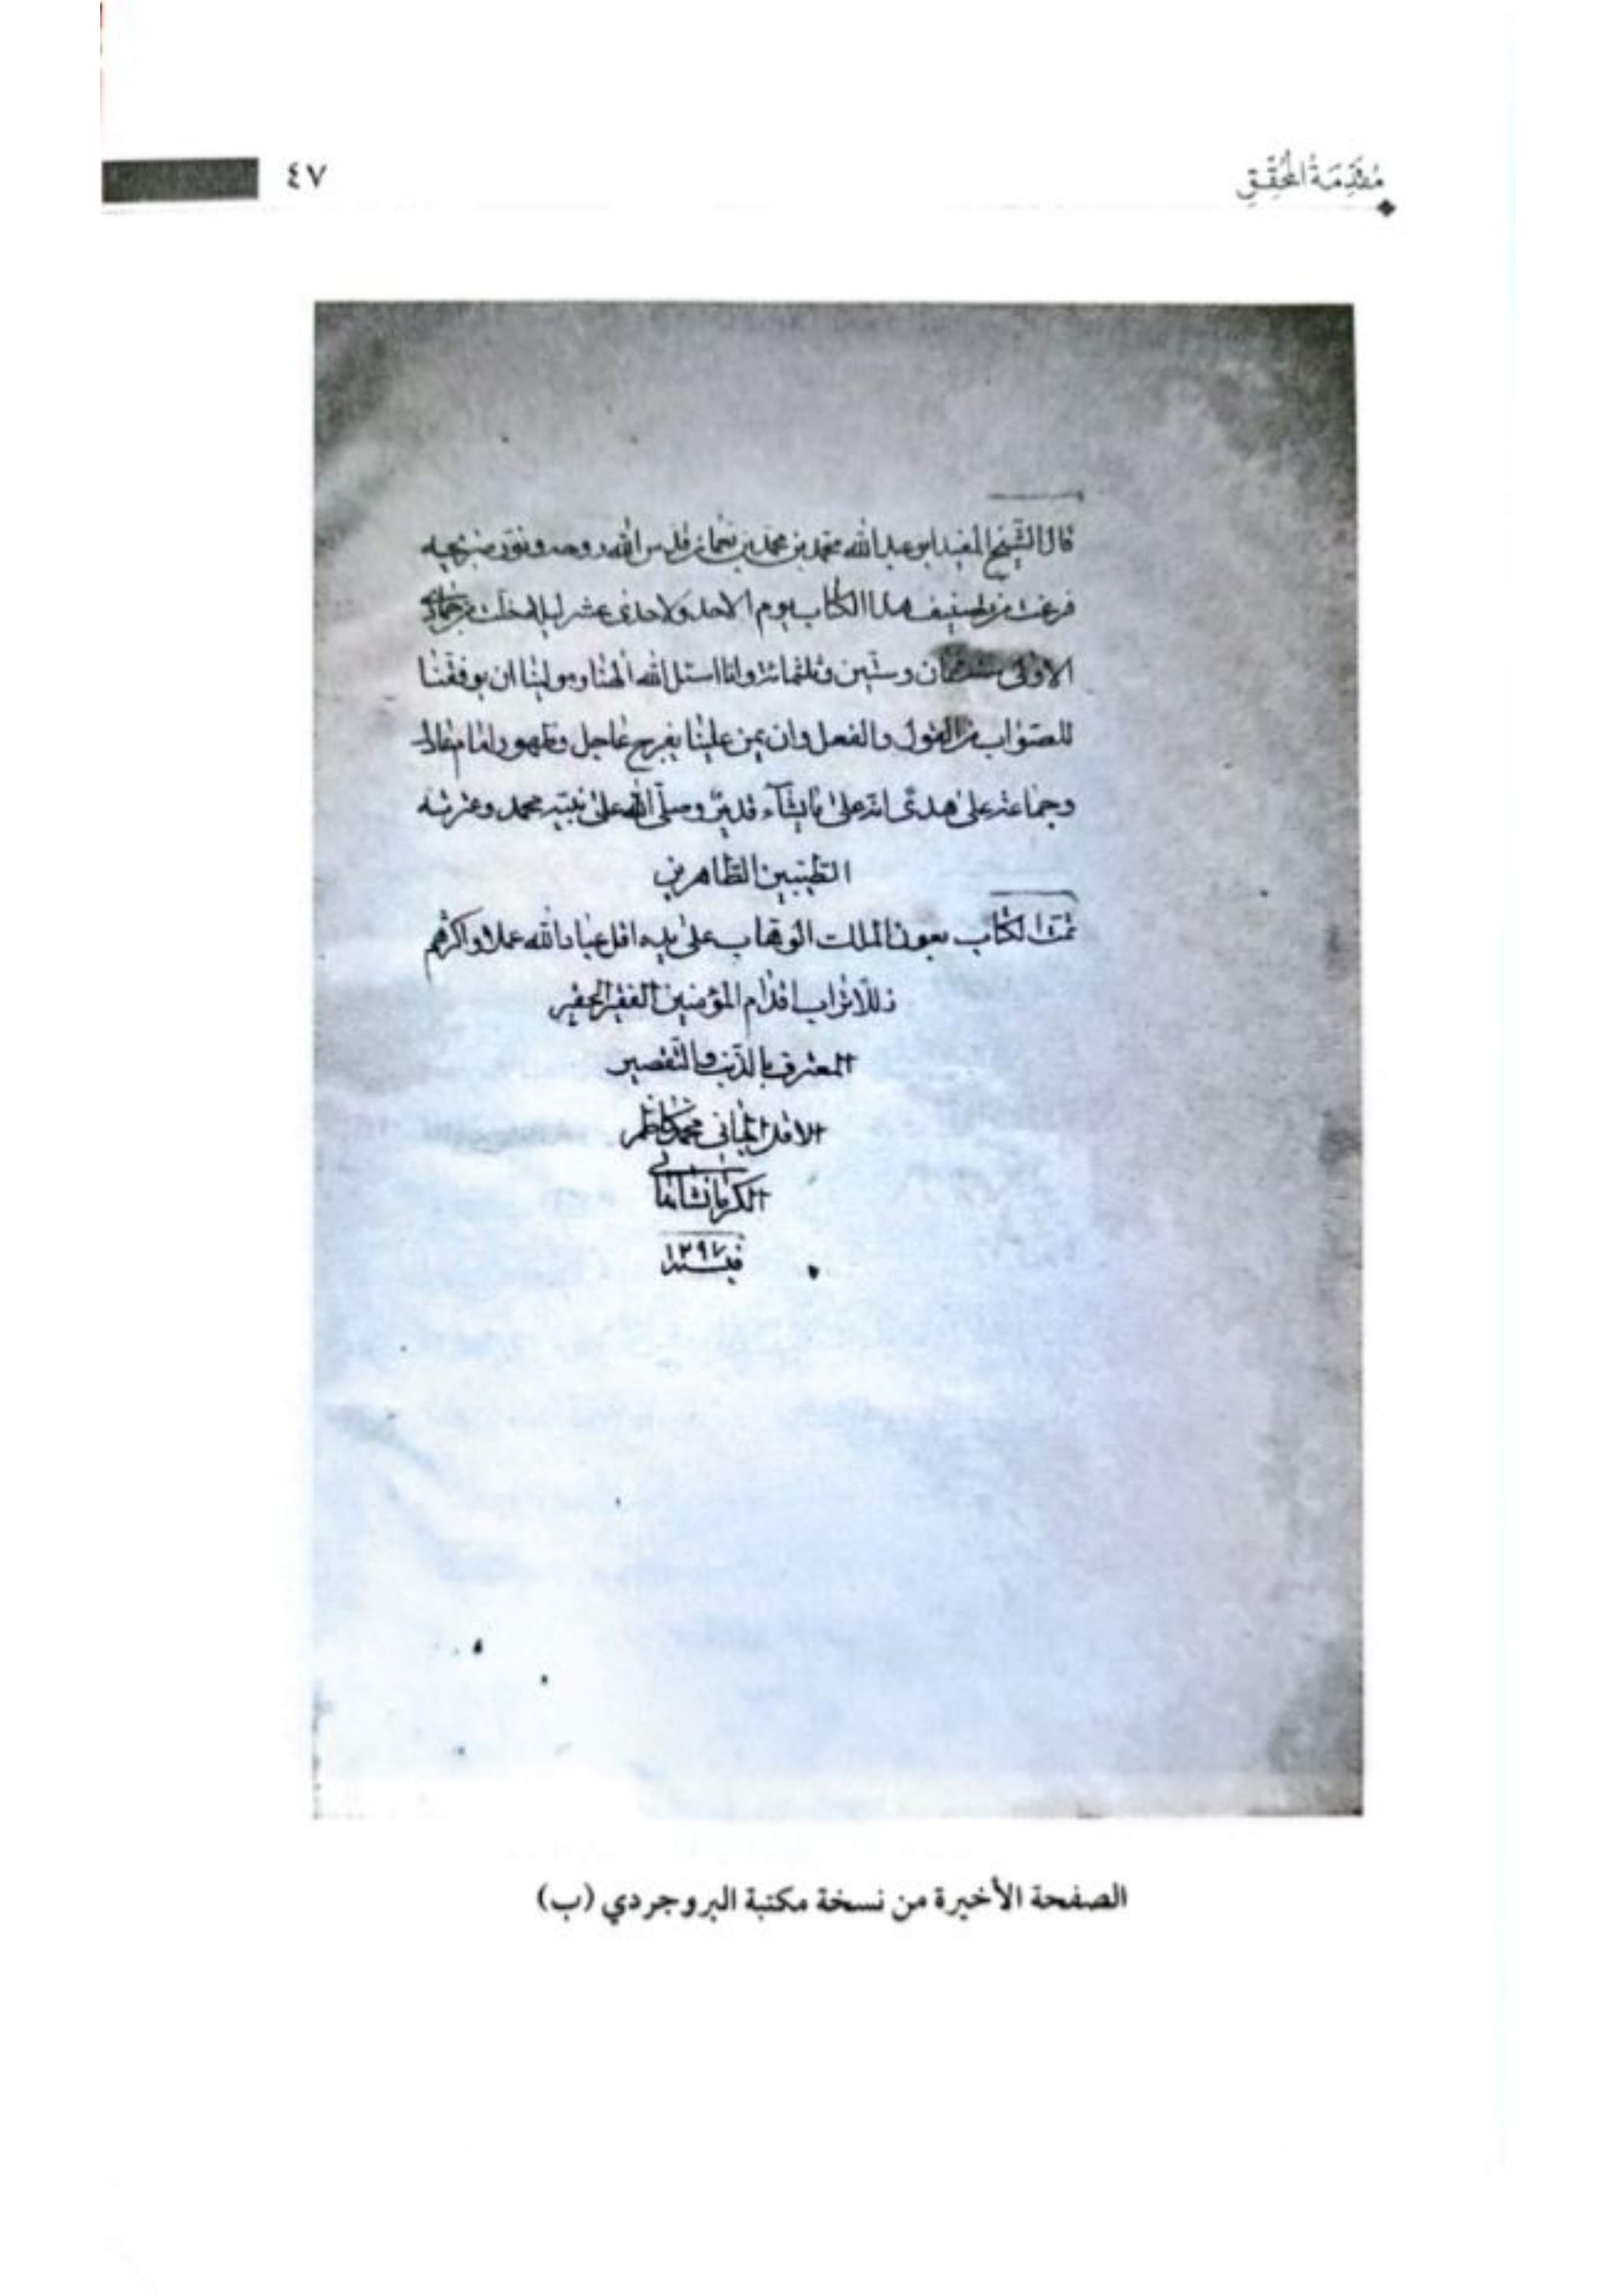 مُقَدِّمَةُ المُحَقِّقِ
٤٧
قال الشيخ المفيد ابو عبد الله محمد بن محمد بن نعمان قدس الله روحه ونور ضريحه
فرغت من تصنيف هذا الكتاب يوم الاحد لاحدى عشر ليلة خلت من جمادى
الاولى سنة ثمان وستين وثلثمائة وانا اسئل الله الهنا ومولينا ان يوفقنا
للصواب من القول والفعل وان يمن علينا بفرج عاجل وظهور امام
وجماعة على هدى انه على ما يشآء قدير وصلى الله على نبيه محمد وعترته
الطيبين الطاهرين
تمت الكتاب بعون الملك الوهاب على يد اقل عباد الله عملا واكثرهم
زللا تراب اقدام المؤمنين الفقير الحقير
المعترف بالذنب والتقصير
الاقل الجاني محمد كاظم
الكرمانشاهاني
في سنة ١٢٩٧
الصفحة الأخيرة من نسخة مكتبة البروجردي (ب)